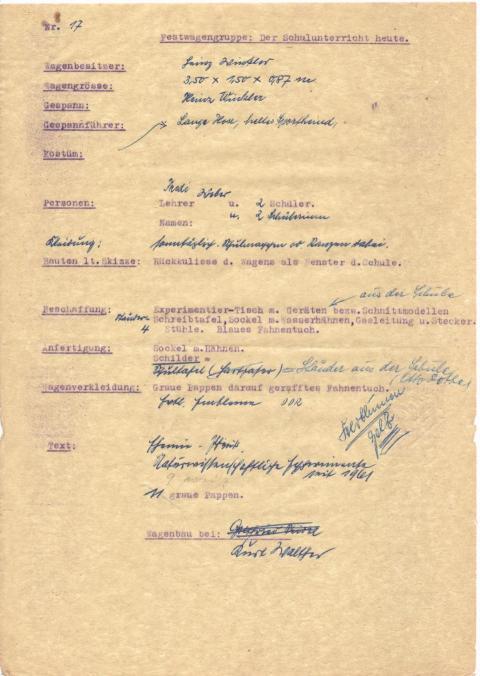 Nr. 17
Festwagengruppe: Der Schulunterricht heute.
Wagenbesitzer: Heinz Winkler
Wagengrösse: 3,50 x 1,50 x 0,87 m
Gespann: Heinz Winkler
Gespannführer: Lange Hose, helles Sporthemd,
Kostüm:
Weber
Personen: Lehrer u. 2 Schüler.
Namen: u. 2 Schülerinnen
Kleidung: sonntäglich. Schulmappen od. Ranzen dabei.
Bauten lt. Skizze: Rückkulisse d. Wagens als Fenster d. Schule.
aus der Schule
Beschaffung: Experimentier-Tisch m. Geräten bezw. Schnittmodellen
Schreibtafel, Sockel m. Wasserhähnen, Gasleitung u. Stecker.
4 Stühle. Blaues Fahnentuch.
Anfertigung: Sockel m. Hähnen.
Schilder =
Schultafel (Hartfaser) = Ständer aus der Schule
Wagenverkleidung: Graue Pappen darauf gerafftes Fahnentuch.
Embleme DDR
gelb
Text: Chemie - Physik
Naturwissenschaftliche Experimente
seit 1961
11 graue Pappen.
Wagenbau bei:
Kurt Walther